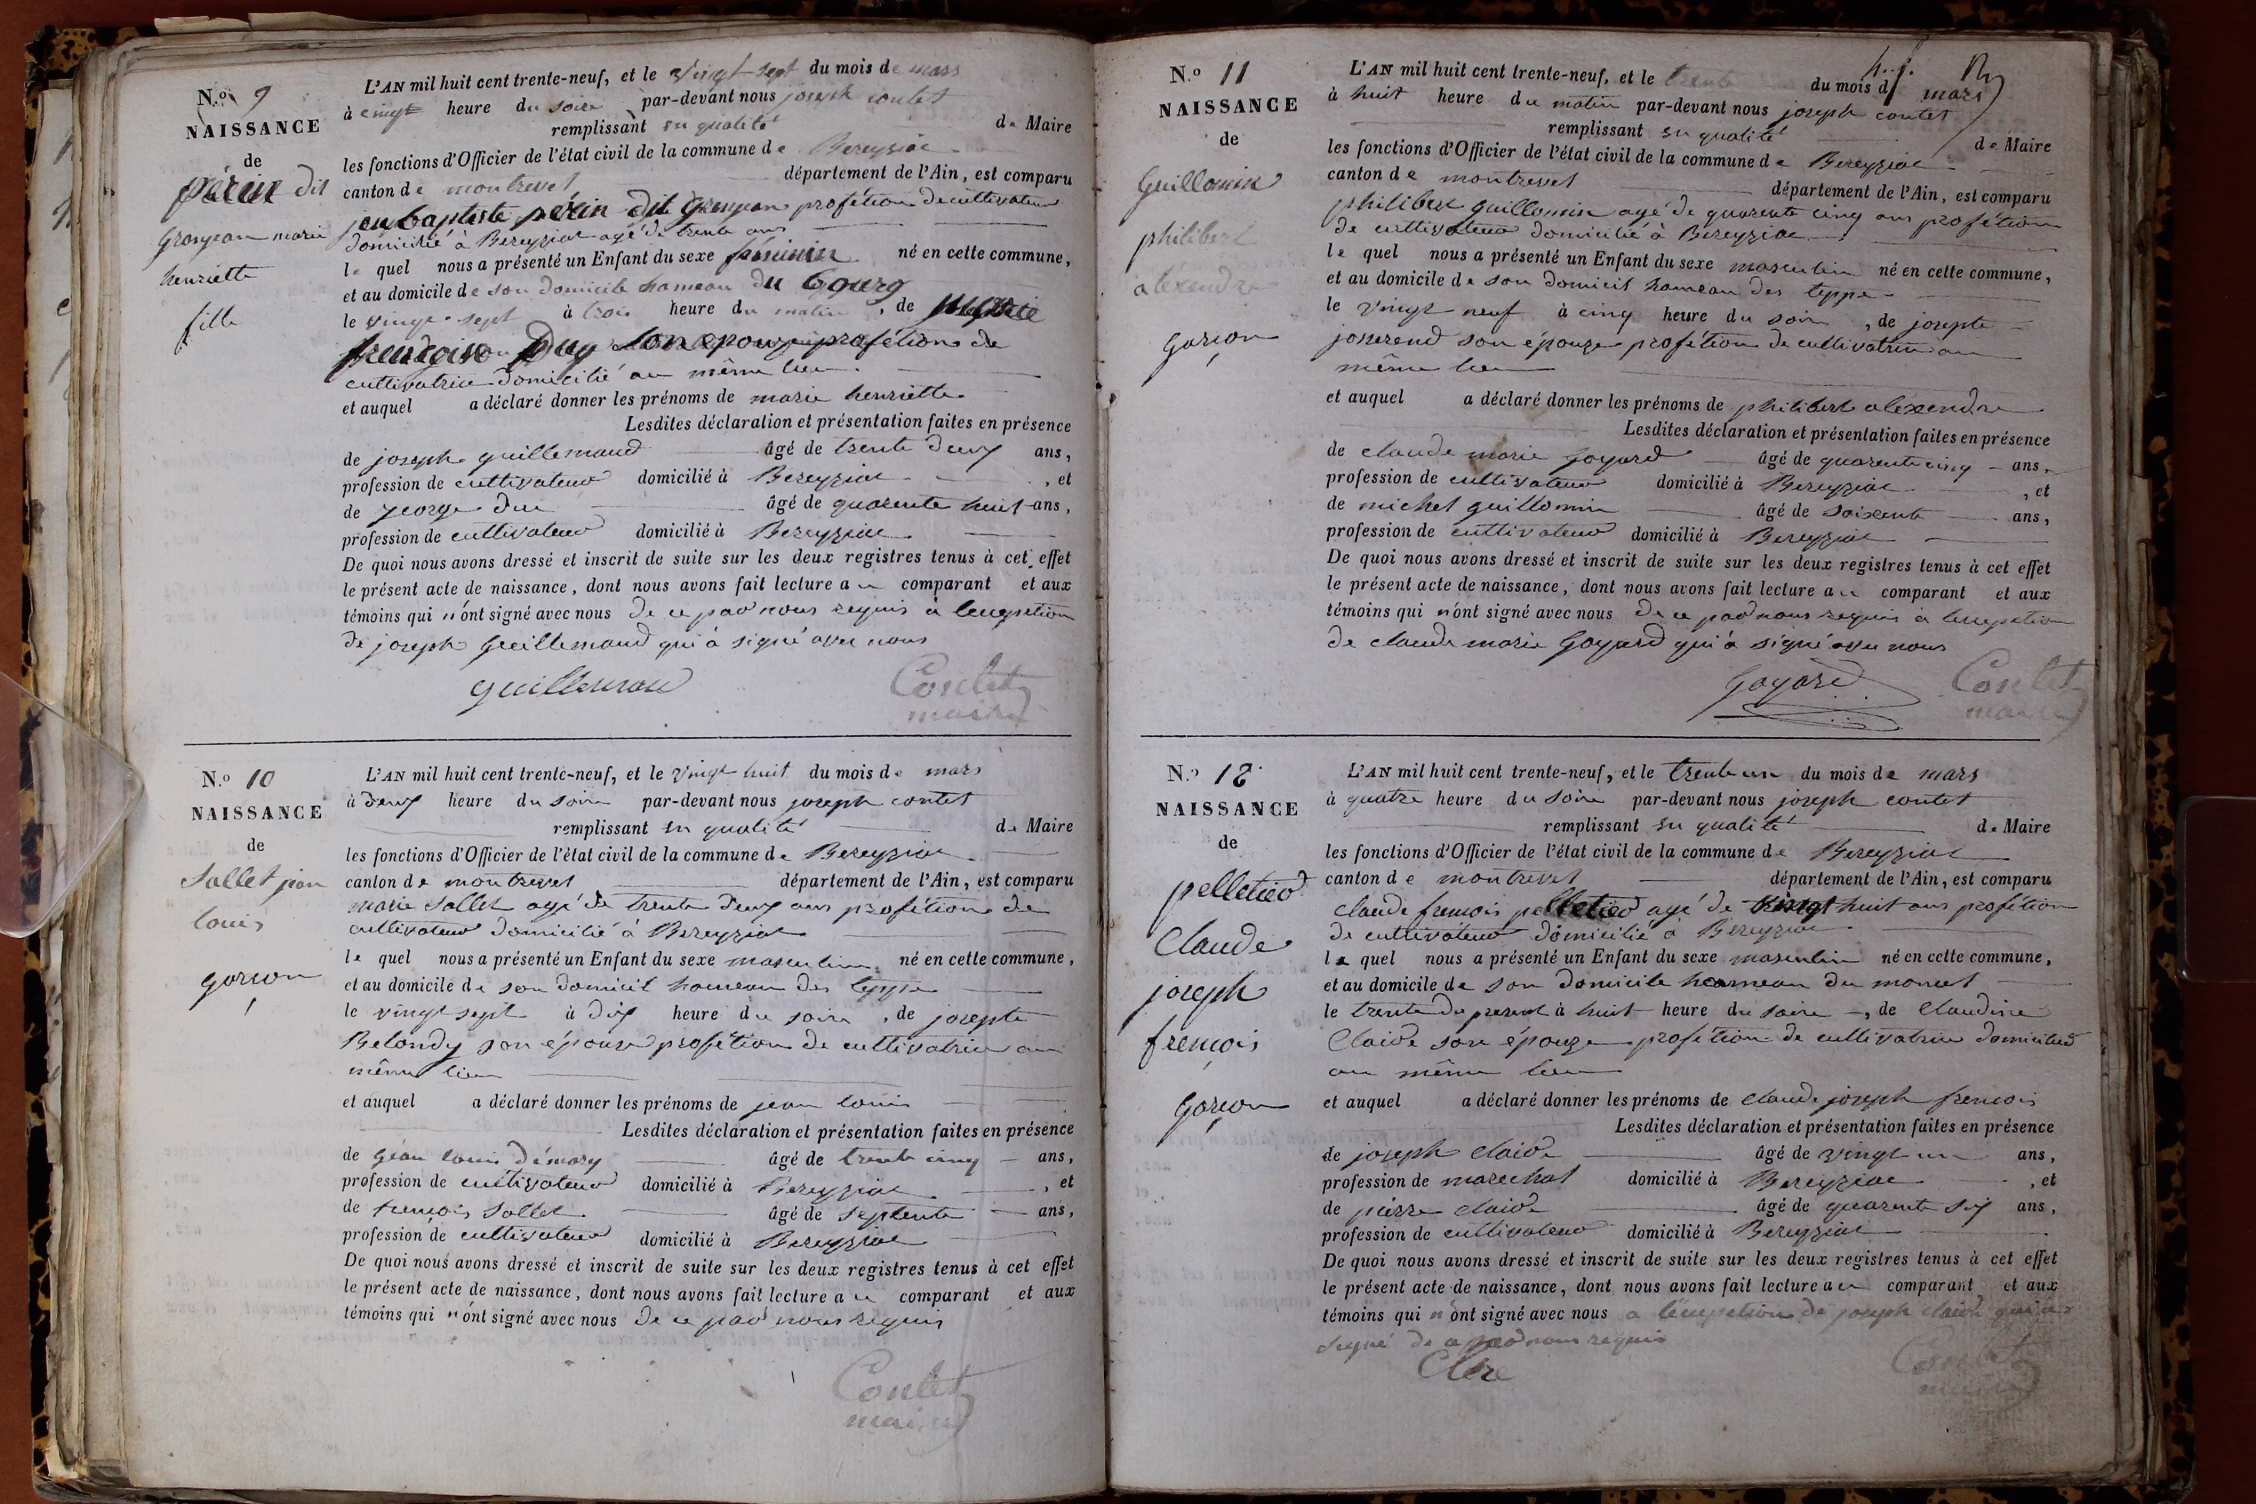 N.º 9
NAISSANCE
de
périn dit
Grosjean marie
henriette
fille
L'AN mil huit cent trente-neuf, et le vingt sept du mois de mars
à cinq heure du soire par-devant nous joseph contet
remplissant en qualité de Maire
les fonctions d'Officier de l'état civil de la commune de Bereyziat
canton de montrevel département de l'Ain, est comparu
jeu baptiste périn dit Grosjean profétion de cultivateur
domicilié à Bereyziat agé de trente ans
le quel nous a présenté un Enfant du sexe féminin né en cette commune,
et au domicile de son domicile hameau du bourg
le vingt sept à trois heure du matin, de marie
françoise Duy son épouze profétion de
cultivatrice domicilié au même lieu
et auquel a déclaré donner les prénoms de marie henriette
Lesdites déclaration et présentation faites en présence
de joseph guillemaud âgé de trente deux ans,
profession de cultivateur domicilié à Bereyziat, et
de george due âgé de quarente huit ans,
profession de cultivateur domicilié à Bereyziat
De quoi nous avons dressé et inscrit de suite sur les deux registres tenus à cet effet
le présent acte de naissance, dont nous avons fait lecture au comparant et aux
témoins qui n'ont signé avec nous de ce par nous requis à lexception
de joseph Guillemaud qui à signé avec nous
guillemau Contet
maire
N.º 10
NAISSANCE
de
Sallet jean
louis
garçon
L'AN mil huit cent trente-neuf, et le vingt huit du mois de mars
à deux heure du soire par-devant nous joseph contet
remplissant en qualité de Maire
les fonctions d'Officier de l'état civil de la commune de Bereyziat
canton de montrevel département de l'Ain, est comparu
marie Sallet agé de trente deux ans profétion de
cultivateur domicilié à Bereyziat
le quel nous a présenté un Enfant du sexe masculin né en cette commune,
et au domicile de son domicil hameau des teppe
le vingt sept à dix heure du soire, de josepte
Belondy son épouze profétion de cultivatrice au
même lieu
et auquel a déclaré donner les prénoms de jean louis
Lesdites déclaration et présentation faites en présence
de géan louis démary âgé de trente cinq ans,
profession de cultivateur domicilié à Bereyziat, et
de frençois Sallet âgé de septente ans,
profession de cultivateur domicilié à Bereyziat
De quoi nous avons dressé et inscrit de suite sur les deux registres tenus à cet effet
le présent acte de naissance, dont nous avons fait lecture au comparant et aux
témoins qui n'ont signé avec nous de ce par nous requis
Contet
maire
N.º 11
NAISSANCE
de
Guillomin
philibert
aléxendre
garçon
L'AN mil huit cent trente-neuf, et le trente du mois de mars
à huit heure du matin par-devant nous joseph contet
remplissant en qualité de Maire
les fonctions d'Officier de l'état civil de la commune de Bereyziat
canton de montrevel département de l'Ain, est comparu
philibert guillomin agé de quarente cinq ans profétion
de cultivateur domicilié à Bereyziat
le quel nous a présenté un Enfant du sexe masculin né en cette commune,
et au domicile de son domicil hameau des teppe
le vingt neuf à cinq heure du soire, de josepte
josserend son épouze profétion de cultivatrice au
même lieu
et auquel a déclaré donner les prénoms de philibert aléxendre
Lesdites déclaration et présentation faites en présence
de claude marie goyard âgé de quarente cinq ans,
profession de cultivateur domicilié à Bereyziat, et
de michel guillomin âgé de soixente ans,
profession de cultivateur domicilié à Bereyziat
De quoi nous avons dressé et inscrit de suite sur les deux registres tenus à cet effet
le présent acte de naissance, dont nous avons fait lecture au comparant et aux
témoins qui n'ont signé avec nous de ce par nous requis à lexception
de claude marie Goyard qui à signé avec nous
Goyard Contet
maire
N.º 12
NAISSANCE
de
pelletier
Claude
joseph
frençois
garçon
L'AN mil huit cent trente-neuf, et le trente un du mois de mars
à quatre heure du soire par-devant nous joseph contet
remplissant en qualité de Maire
les fonctions d'Officier de l'état civil de la commune de Bereyziat
canton de montrevel département de l'Ain, est comparu
claude frençois pelletier agé de vingt huit ans profétion
de cultivateur domicilié à Bereyziat
le quel nous a présenté un Enfant du sexe masculin né en cette commune,
et au domicile de son domicile hameau du moncet
le trente du present à huit heure du soire, de Claudine
Claide son épouze profétion de cultivatrice domiciliée
au même lieu
et auquel a déclaré donner les prénoms de Claude joseph frencois
Lesdites déclaration et présentation faites en présence
de joseph claide âgé de vingt un ans,
profession de marechal domicilié à Bereyziat, et
de piérre claide âgé de quarente six ans,
profession de cultivateur domicilié à Bereyziat
De quoi nous avons dressé et inscrit de suite sur les deux registres tenus à cet effet
le présent acte de naissance, dont nous avons fait lecture au comparant et aux
témoins qui n'ont signé avec nous a léxception de joseph claide qui à
signé de ce par nous requis
Contet
maire